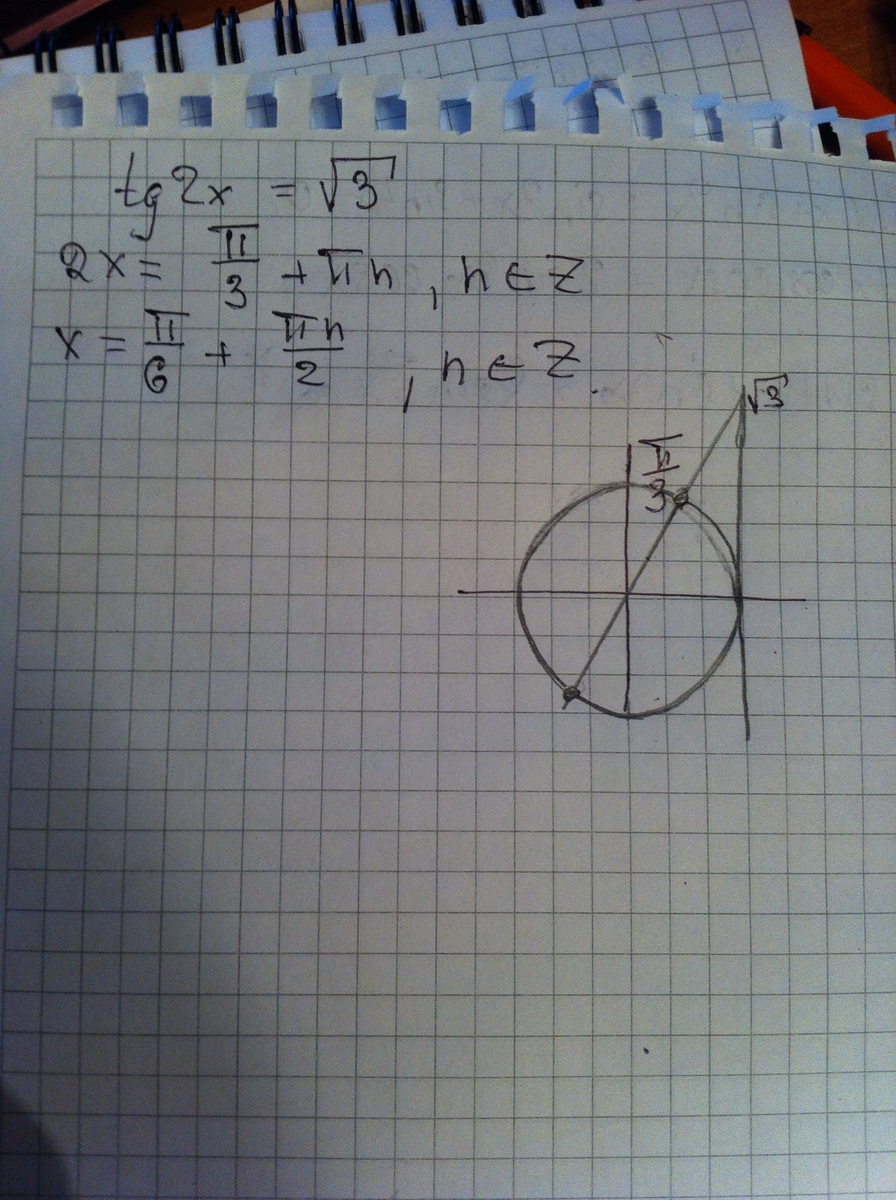 tg2x = √3
2x = π/3 + πn, n ∈ Z
x = π/6 + πn/2, n ∈ Z.
√3
π/3